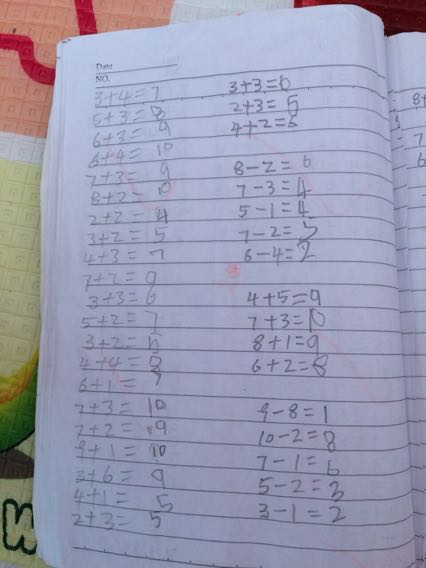 Date
NO.
3+4=7
5+3=8
6+3=9
6+4=10
7+3=9
8+2=10
2+2=4
3+2=5
4+3=7
7+2=9
3+3=6
5+2=7
4+4=8
6+1=7
7+3=10
7+2=9
9+1=10
3+6=9
4+1=5
2+3=5
3+3=6
2+3=5
4+2=6
8-2=6
7-3=4
5-1=4
7-2=5
6-4=2
4+5=9
7+3=10
8+1=9
6+2=8
9-8=1
10-2=8
7-1=6
5-2=3
3-1=2
8+
7
6
W